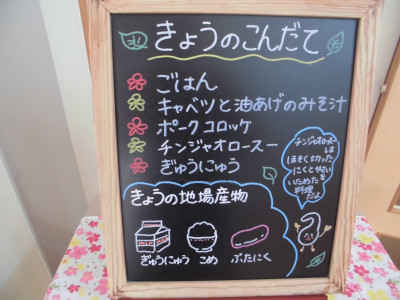 きょうのこんだて
ごはん
キャベツと油あげのみそ汁
ポークコロッケ
チンジャオロースー
ぎゅうにゅう
チンジャオロースー
は
ほそく切った
にくとやさい
をいためた
料理
だよ
きょうの地場産物
ぎゅうにゅう こめ ぶたにく